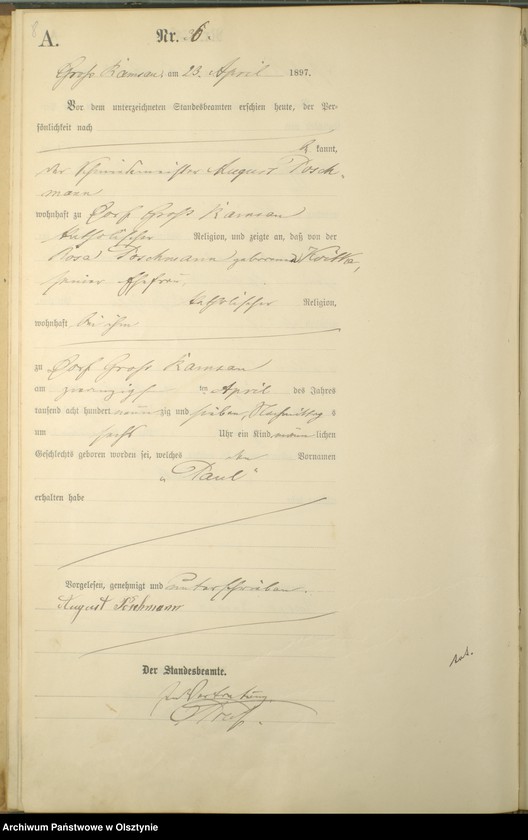 A.
Nr. 6.
Groß Ramsau, am 23. April 1897.
Vor dem unterzeichneten Standesbeamten erschien heute, der Per-
sönlichkeit nach
kannt,
der August Posch-
mann
wohnhaft zu Dorf Groß Ramsau
katholischer Religion, und zeigte an, daß von der
Rosa Poschmann geborenen
seiner Ehefrau,
katholischer Religion,
wohnhaft bei ihm
zu Dorf Groß Ramsau
am zwanzigst ten April des Jahres
tausend acht hundert neunzig und sieben, Nachmittag s
um sechs Uhr ein Kind männlichen
Geschlechts geboren worden sei, welches den Vornamen
„Paul“
erhalten habe
Vorgelesen, genehmigt und unterschrieben.
August Poschmann
Der Standesbeamte.
In Vertretung.
Archiwum Państwowe w Olsztynie